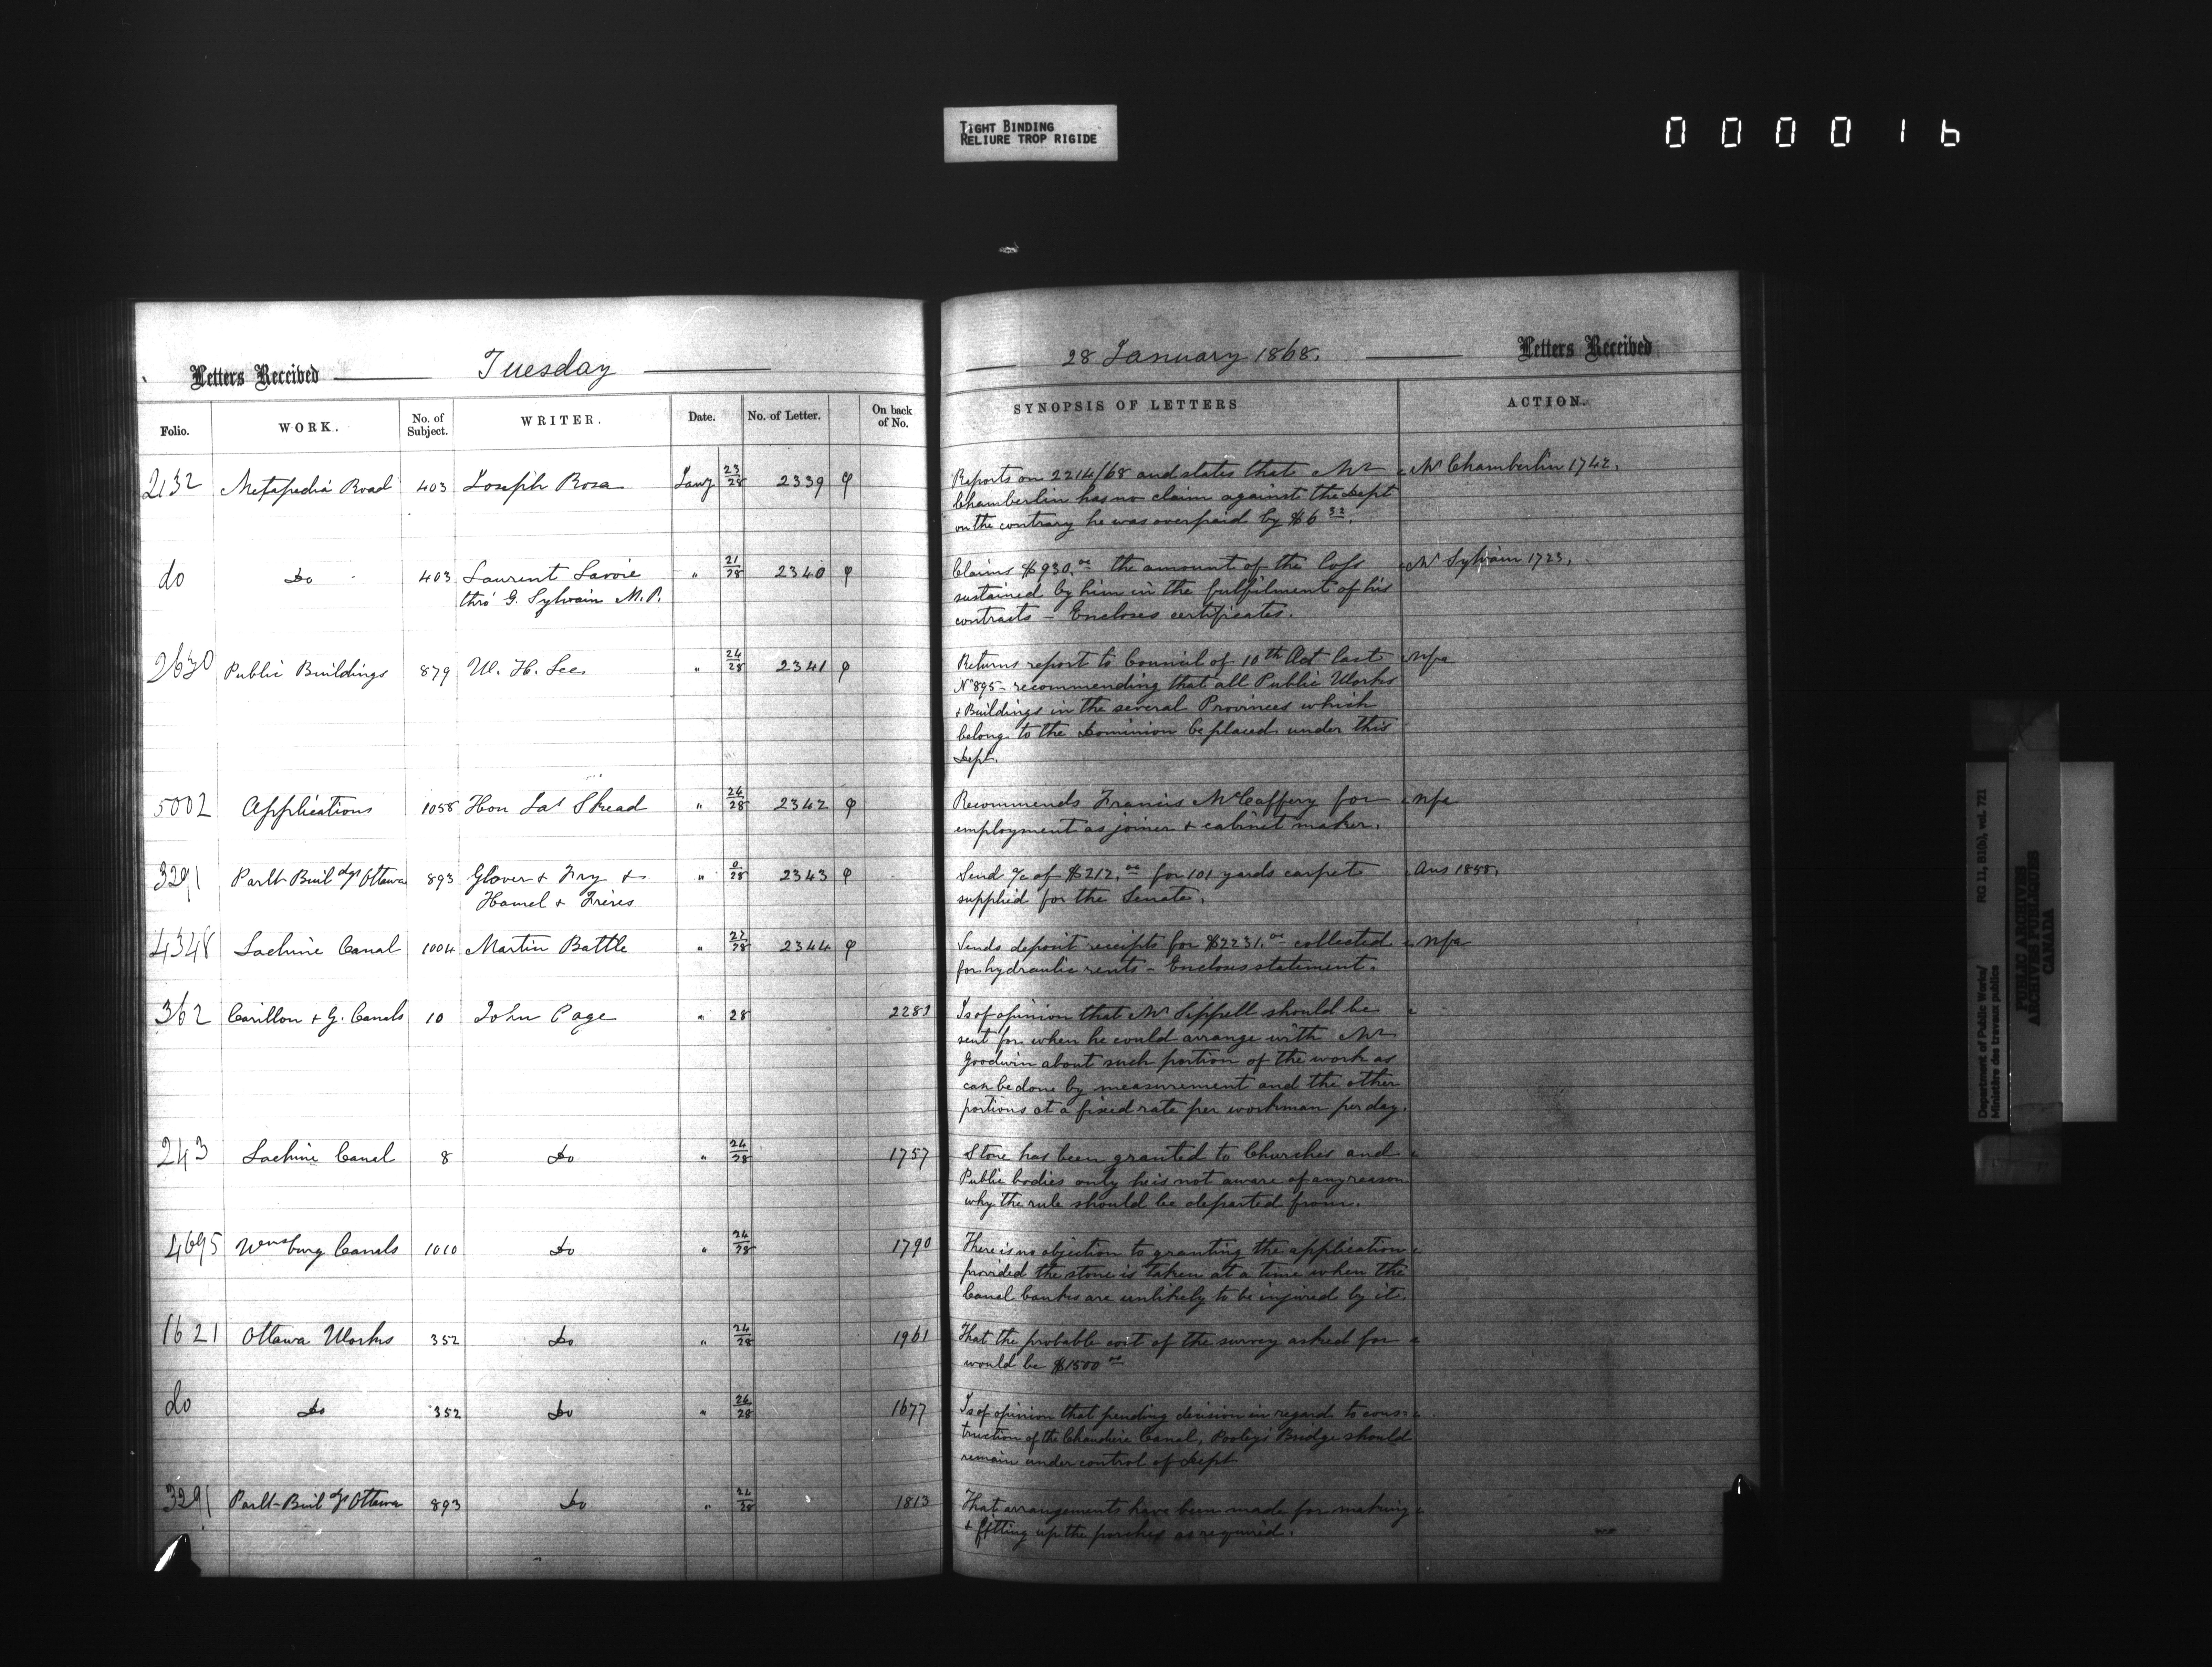 TIGHT BINDING
RELIURE TROP RIGIDE
0 0 0 0 1 6
Letters Received Tuesday
28 January 1868. Letters Received
Folio. WORK. No. of Subject. WRITER. Date. No. of Letter. On back of No. SYNOPSIS OF LETTERS ACTION.
2132 Metapedia Road 403 Joseph Rosa Jany 23/28 2339 φ Reports on 2214/68 and states that Mr Mr Chamberlin 1742.
Chamberlin has no claim against the Dept
on the contrary he was overpaid by $6 32.
do Do 403 Laurent Lavoie " 21/28 2340 φ Claims $930.00 the amount of the loss Mr Sylvain 1723.
thro' G. Sylvain M.P. sustained by him in the fulfilment of his
contracts - Encloses certificates.
2630 Public Buildings 879 W. H. Lee " 24/28 2341 φ Returns report to Council of 10th Oct last nfa
No 895 - recommending that all Public Works
& Buildings in the several Provinces which
belong to the Dominion be placed under this
Dept.
5002 Applications 1058 Hon Jas Skead " 24/28 2342 φ Recommends Francis McCaffery for nfa
employment as joiner & cabinet maker.
3291 Parlt Buildgs Ottawa 893 Glover & Fry & " 0/28 2343 φ Send a/c of $212.00 for 101 yards carpet Ans 1858.
Hamel & Frères supplied for the Senate.
4348 Lachine Canal 1004 Martin Battle " 27/28 2344 φ Sends deposit receipts for $2231.00 collected nfa
for hydraulic rents - Encloses statement.
362 Carillon & G. Canals 10 John Page " 28 2281 Is of opinion that Mr Sippell should be
sent for when he could arrange with Mr
Goodwin about such portion of the work as
can be done by measurement and the other
portions at a fixed rate per workman per day.
243 Lachine Canal 8 Do " 24/28 1757 Stone has been granted to Churches and
Public bodies only he is not aware of any reason
why the rule should be departed from.
4695 Wmsburg Canals 1010 Do " 24/28 1790 There is no objection to granting the application
provided the stone is taken at a time when the
Canal banks are unlikely to be injured by it.
1621 Ottawa Works 352 Do " 24/28 1961 That the probable cost of the survey asked for
would be $1500 00
do Do 352 Do " 24/28 1677 Is of opinion that pending decision in regard to cons-
truction of the Chaudière Canal, Pooley's Bridge should
remain under control of Dept
3291 Parlt-Buildgs Ottawa 893 Do " 24/28 1813 That arrangements have been made for making
& fitting up the porches as required.
Department of Public Works/
Ministère des travaux publics
RG 11, B1(b), vol. 721
PUBLIC ARCHIVES
ARCHIVES PUBLIQUES
CANADA